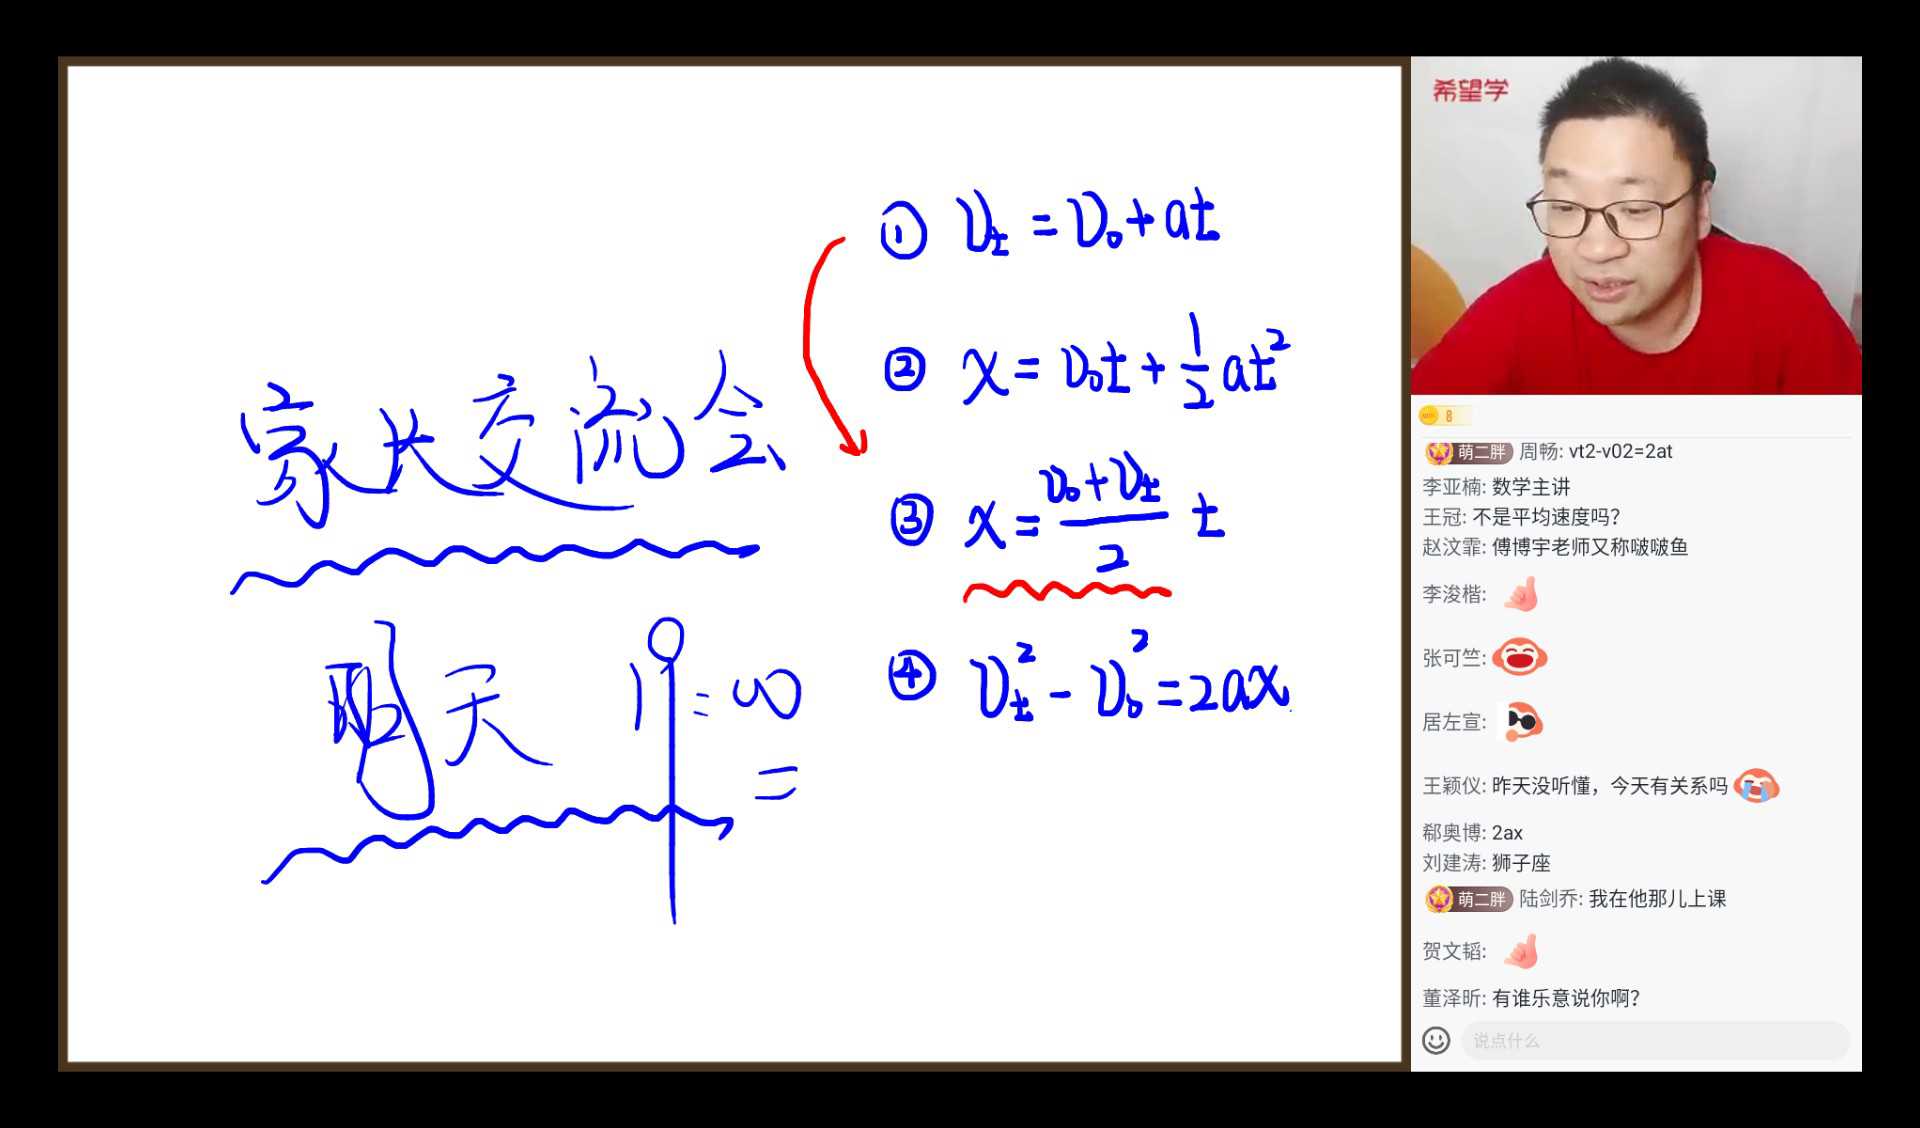 家长交流会
明天
① v_t = v_0 + at
② x = v_0t + 1/2 at²
③ x = (v_0+v_t)/2 t
④ v_t² - v_0² = 2ax
希望学
8
萌二胖 周畅: vt2-v02=2at
李亚楠: 数学主讲
王冠: 不是平均速度吗?
赵汶霏: 傅博宇老师又称啵啵鱼
李浚楷:
张可竺:
居左宣:
王颖仪: 昨天没听懂，今天有关系吗
郗奥博: 2ax
刘建涛: 狮子座
萌二胖 陆剑乔: 我在他那儿上课
贺文韬:
董泽昕: 有谁乐意说你啊?
说点什么